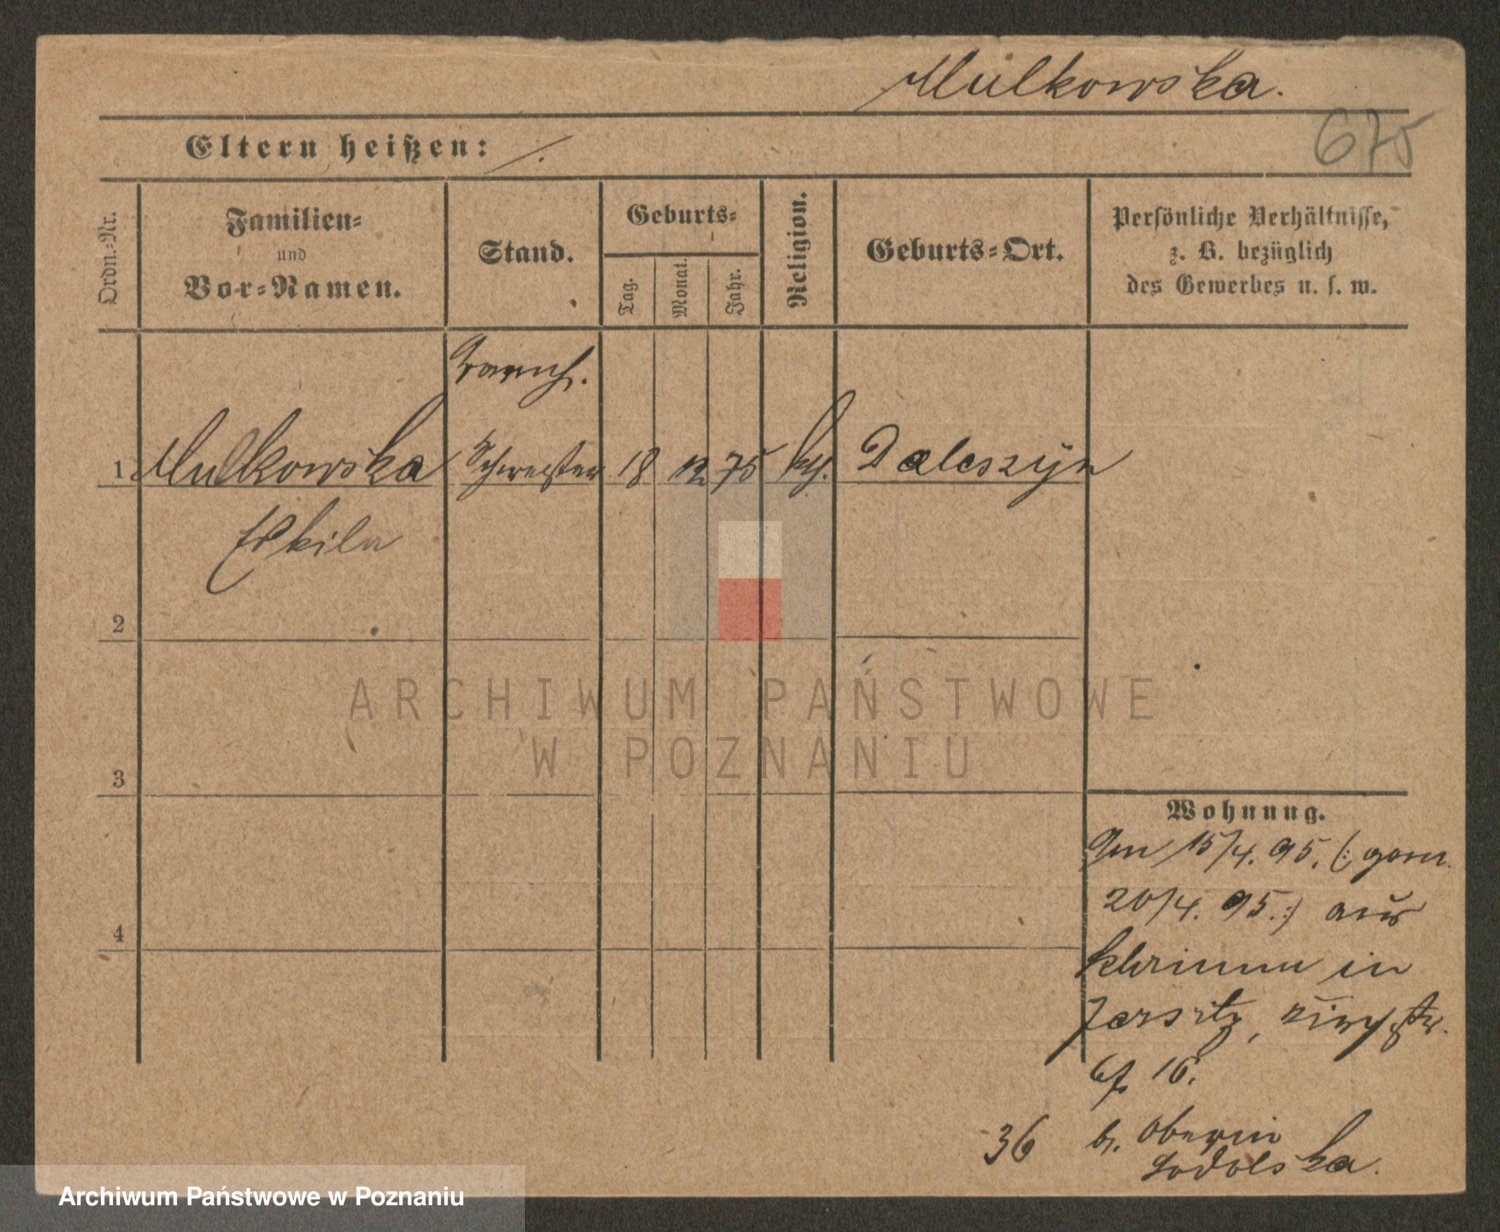 Mulkowska.
Eltern heißen: /.
675
Ordn.-Nr.
Familien-
und
Vor-Namen.
Stand.
Geburts-
Tag.
Monat.
Jahr.
Religion.
Geburts-Ort.
Persönliche Verhältnisse,
z. B. bezüglich
des Gewerbes u. s. w.
barmh.
1 Mulkowska Schwester 18 12 75 kth. Daleszyn
2
3
4
ARCHIWUM PAŃSTWOWE
W POZNANIU
Wohnung.
Am 15/4. 95. (: gem.
20/4. 95. :) aus
in
Jersitz,
16.
36 b. Oberin
Archiwum Państwowe w Poznaniu